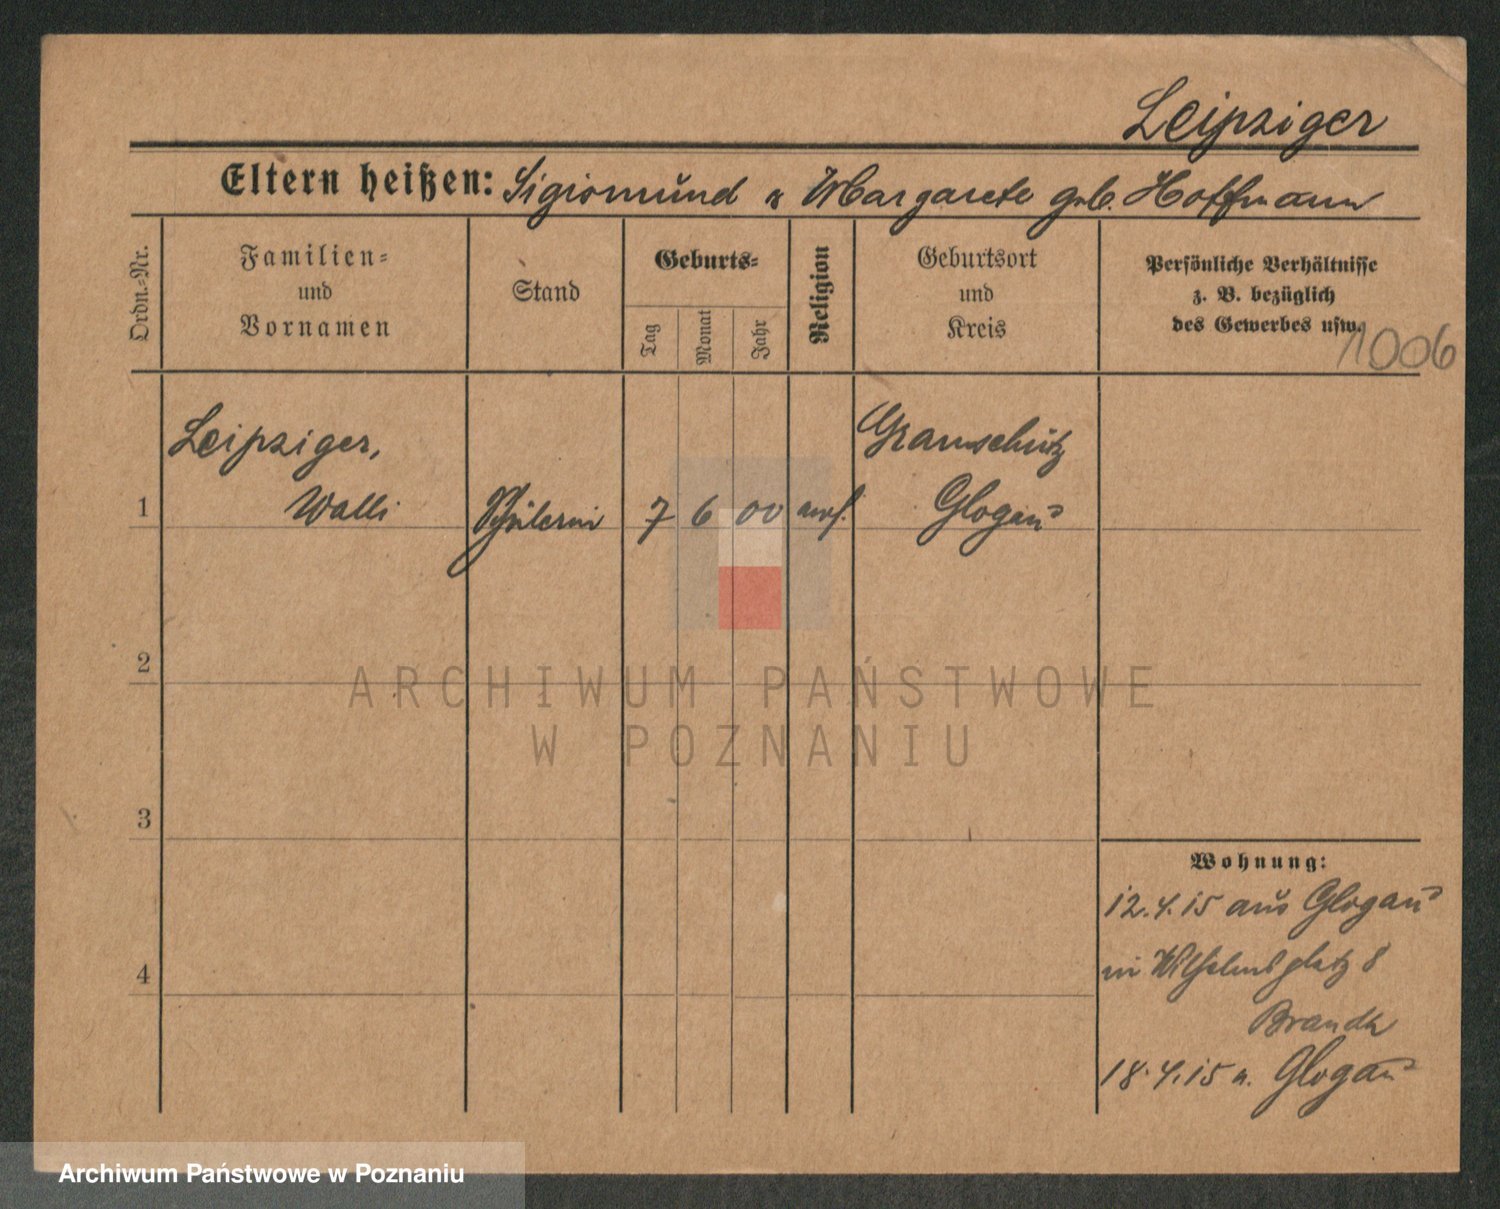 Leipziger
Eltern heißen: Sigismund & Margarete geb. Hoffmann
Ordn.-Nr.
Familien-
und
Vornamen
Stand
Geburts-
Tag
Monat
Jahr
Religion
Geburtsort
und
Kreis
Persönliche Verhältnisse
z. B. bezüglich
des Gewerbes usw.
1006
Leipziger,
Gramschütz
1 Walli Schülerin 7 6 00 mos. Glogau
2
ARCHIWUM PAŃSTWOWE
W POZNANIU
3
Wohnung:
12.4.15 aus Glogau
4
in Wilhelmsplatz 8
Brandt
18.4.15 n. Glogau
Archiwum Państwowe w Poznaniu